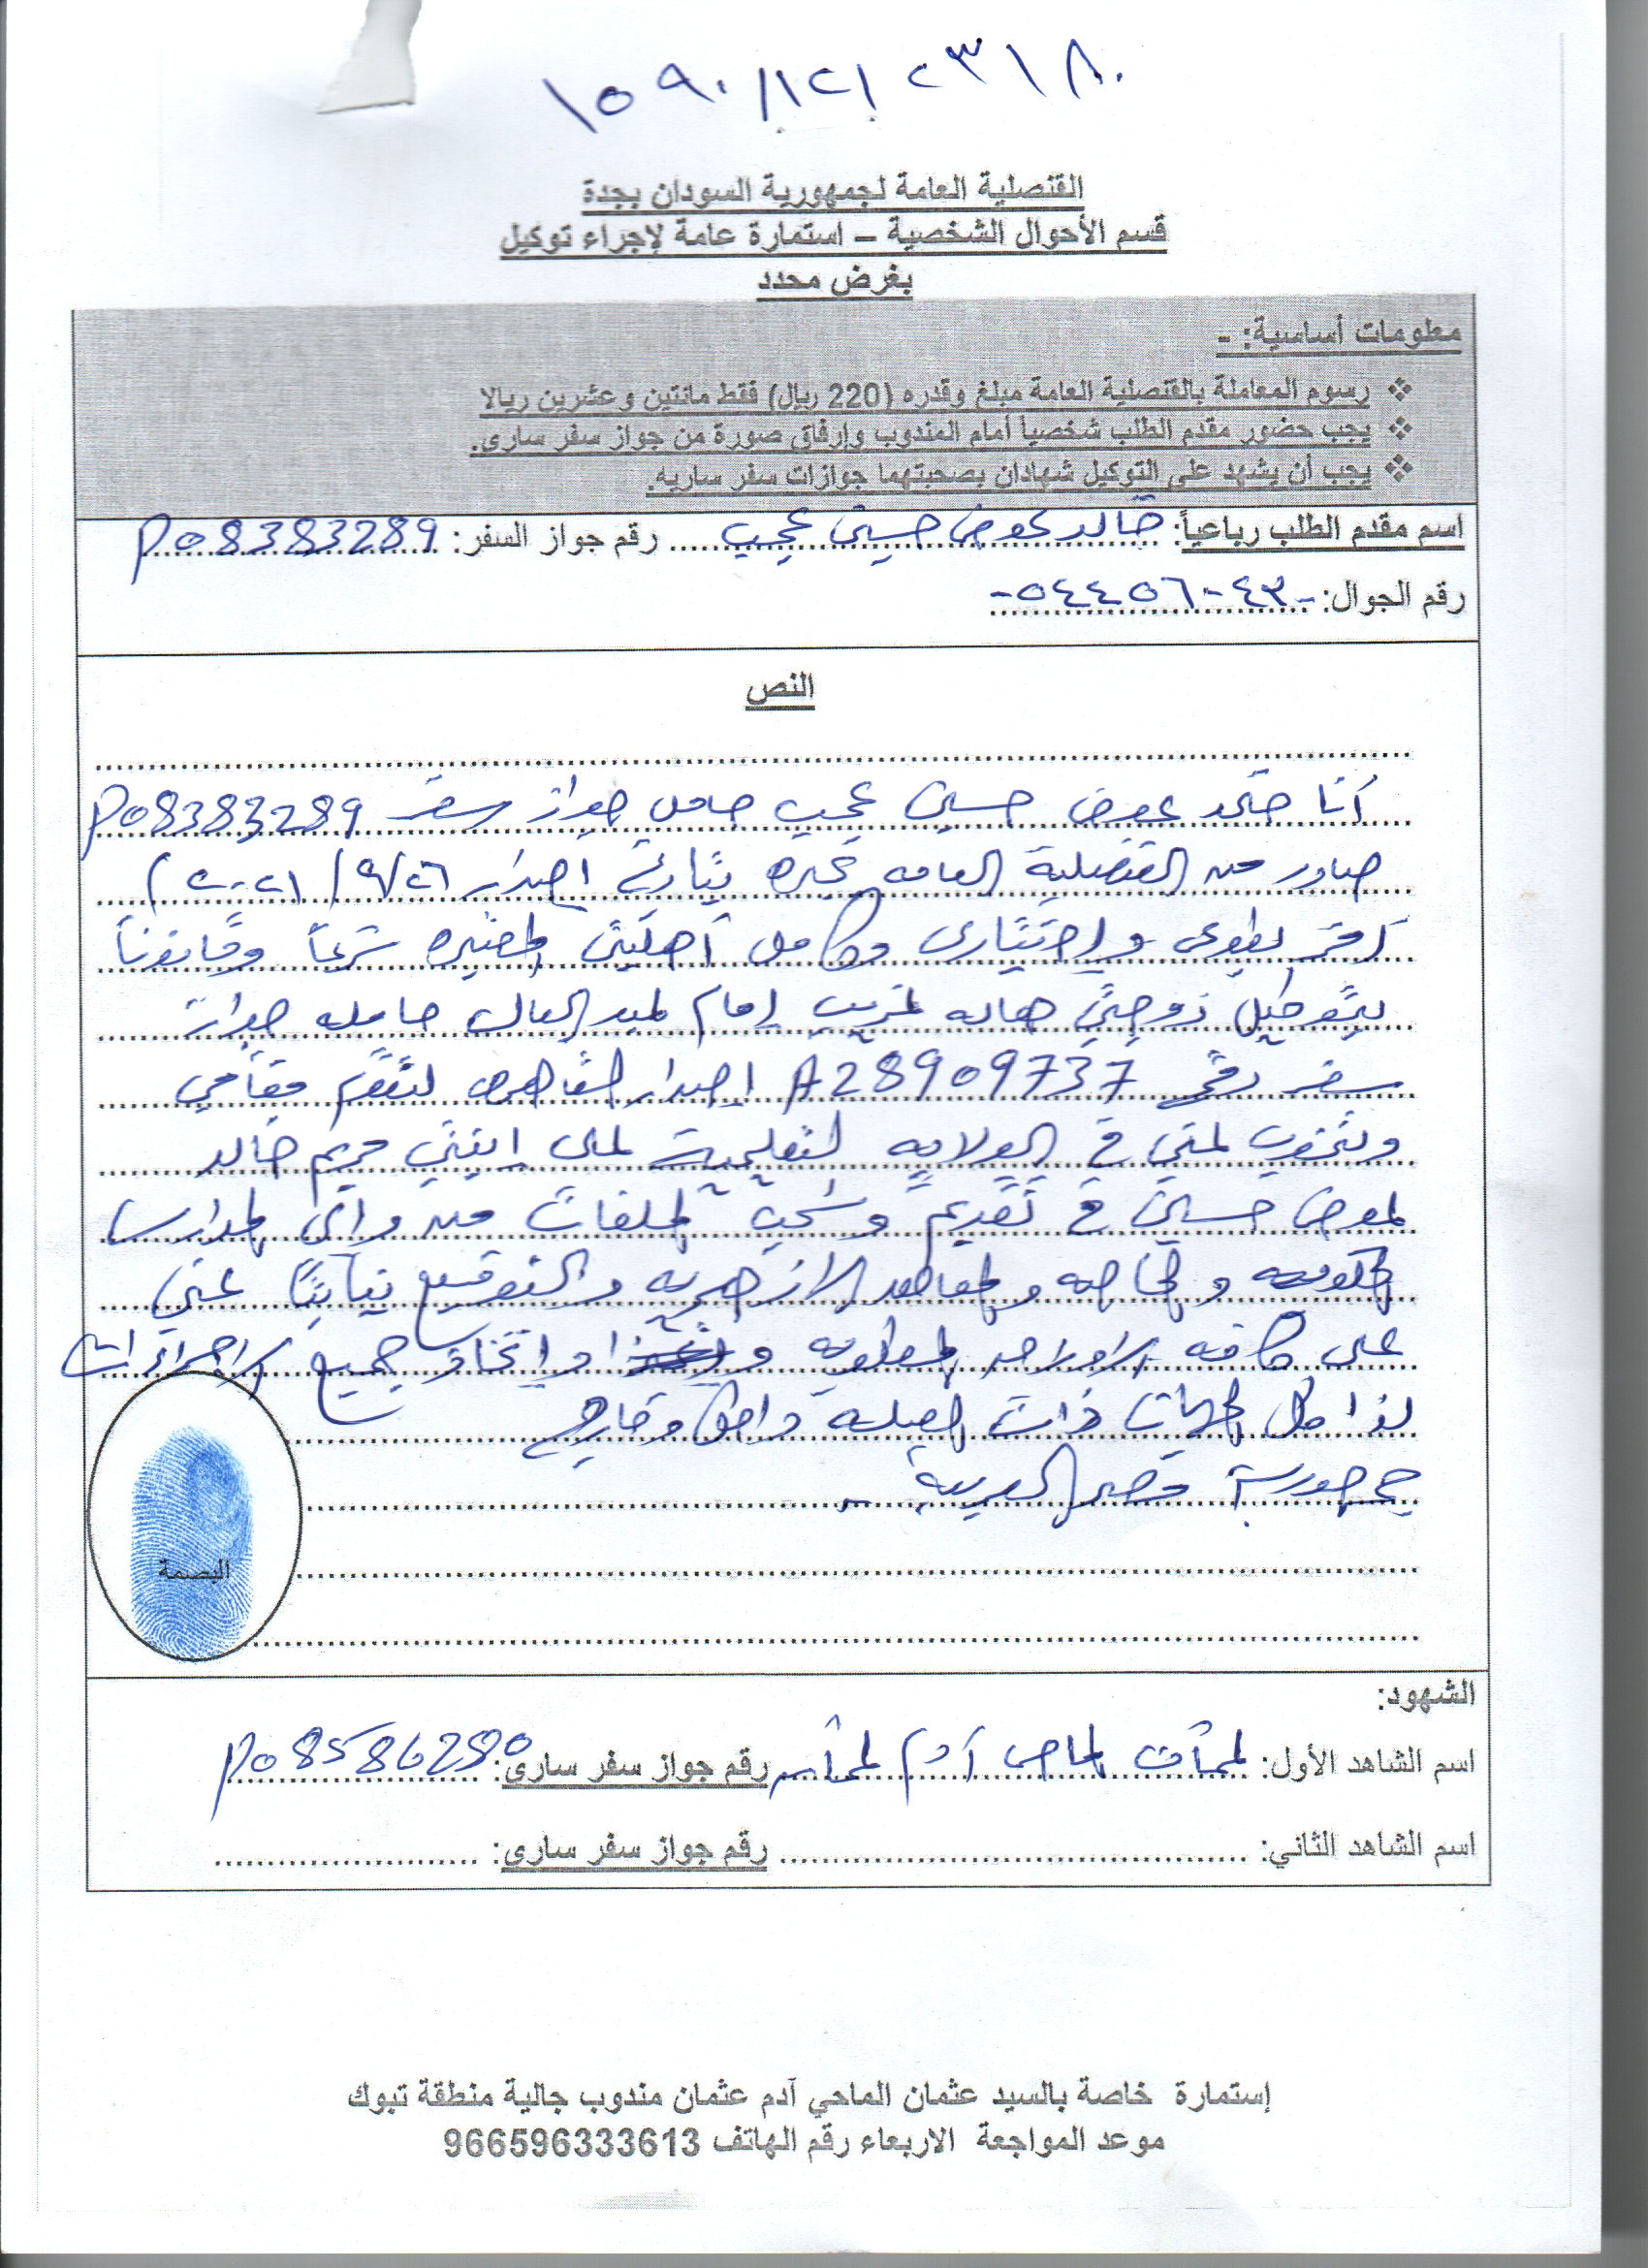 ١٥٩٠/١٢/٢٣/٨٠
القنصلية العامة لجمهورية السودان بجدة
قسم الأحوال الشخصية – استمارة عامة لإجراء توكيل
بغرض محدد
معلومات أساسية: -
❖ رسوم المعاملة بالقنصلية العامة مبلغ وقدره (220 ريال) فقط مائتين وعشرين ريالا
❖ يجب حضور مقدم الطلب شخصياً أمام المندوب وإرفاق صورة من جواز سفر سارى.
❖ يجب أن يشهد على التوكيل شهادان بصحبتهما جوازات سفر ساريه.
اسم مقدم الطلب رباعياً: خالد عوض حسين عجيب رقم جواز السفر: P08383289
رقم الجوال: ٠٥٤٤٥٦٠٤٣٠
النص
أنا خالد عوض حسين عجيب حامل جواز سفر P08383289
صادر من القنصلية العامه بجده بتاريخ اصدار ٢٦/٩/٢٠٢١)
أقر بطوعى وإختيارى وكامل أهليتى المعتبره شرعاً وقانوناً
بتوكيل زوجتي هاله غريب إمام عبد العال حامله جواز
سفر رقم A28909737 إصدار القاهره لتقوم مقامي
وتنوب عني في الولايه التعليمية على إبنتي مريم خالد
عوض حسين في تقديم وسحب الملفات من والى المدارس
الحكوميه والخاصه والمعاهد الازهريه والتوقيع نيابتاً عني
على كافه الاوراق المطلوبه و واتخاذ جميع الاجراءات
لذا كل الجهات ذات الصله داخل وخارج
جمهورية مصر العربية .
البصمة
الشهود:
اسم الشاهد الأول: عثمان الماحى آدم عثمان رقم جواز سفر سارى: P08586280
اسم الشاهد الثاني: رقم جواز سفر سارى:
إستمارة خاصة بالسيد عثمان الماحي آدم عثمان مندوب جالية منطقة تبوك
موعد المواجعة الاربعاء رقم الهاتف 966596333613